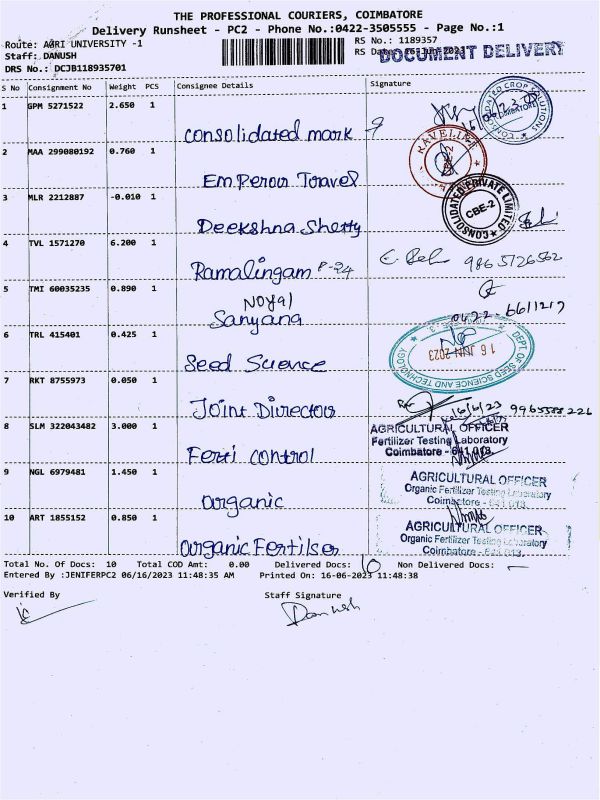 THE PROFESSIONAL COURIERS, COIMBATORE
Delivery Runsheet - PC2 - Phone No.:0422-3505555 - Page No.:1
Route: AGRI UNIVERSITY -1
RS No.: 1189357
Staff: DANUSH
RS Date: 16-Jun-2023
DOCUMENT DELIVERY
DRS No.: DCJB118935701
S No Consignment No Weight PCS Consignee Details Signature
1 GPM 5271522 2.650 1
Consolidated mark
CONSOLIDATED CROP SOLUTIONS
COIMBATORE
2 MAA 299080192 0.760 1
Emperou Travel
3 MLR 2212887 -0.010 1
Deekshna Shetty
CONSOLIDATED PRIVATE LIMITED
CBE-2
4 TVL 1571270 6.200 1
Ramalingam P-24
9865726562
5 TMI 60035235 0.890 1
Noyal
Sanyang
0422-6611217
6 TRL 415401 0.425 1
Seed Science
DEPT. OF SEED SCIENCE AND TECHNOLOGY
16 JUN 2023
7 RKT 8755973 0.050 1
Joint Director
16/6/23 9965588226
8 SLM 322043482 3.000 1
Ferti control
AGRICULTURAL OFFICER
Fertilizer Testing Laboratory
Coimbatore - 641 013.
9 NGL 6979481 1.450 1
organic
AGRICULTURAL OFFICER
Organic Fertilizer Testing Laboratory
Coimbatore - 641 013.
10 ART 1855152 0.850 1
organic Fertilser
AGRICULTURAL OFFICER
Organic Fertilizer Testing Laboratory
Coimbatore - 641 013.
Total No. Of Docs: 10 Total COD Amt: 0.00 Delivered Docs: 10 Non Delivered Docs: -
Entered By :JENIFERPC2 06/16/2023 11:48:35 AM Printed On: 16-06-2023 11:48:38
Verified By Staff Signature
Danush